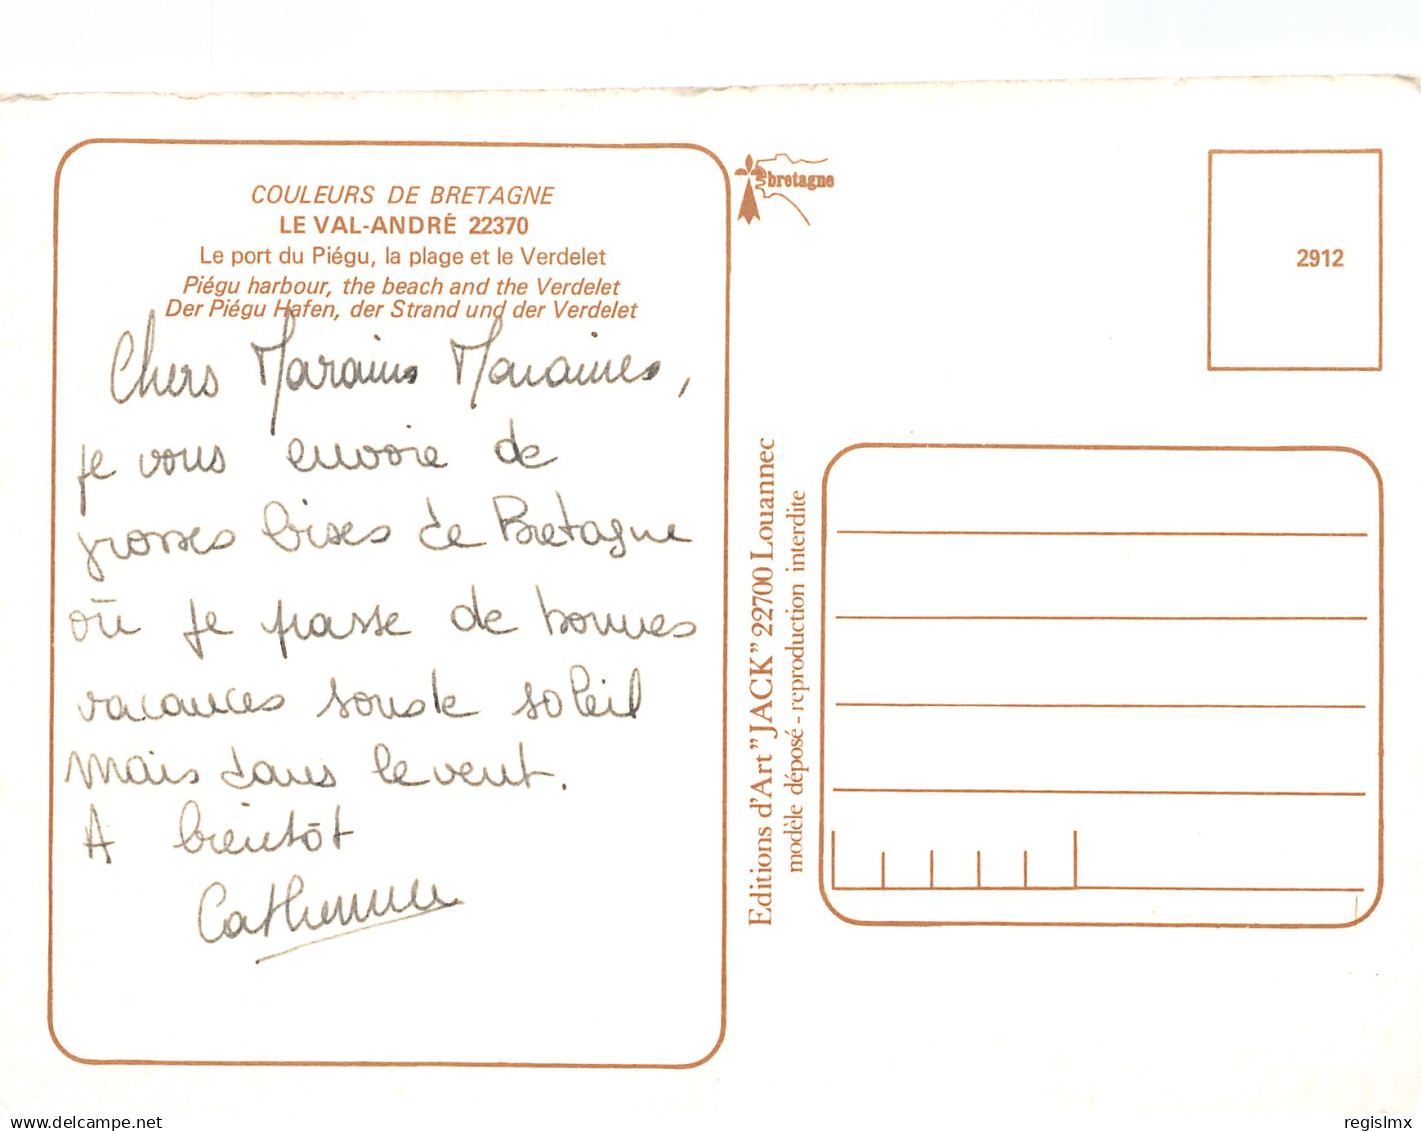 COULEURS DE BRETAGNE
LE VAL-ANDRÉ 22370
Le port du Piégu, la plage et le Verdelet
Piégu harbour, the beach and the Verdelet
Der Piégu Hafen, der Strand und der Verdelet
Chers Parrains Marraines,
je vous envoie de
grosses bises de Bretagne
où je passe de bonnes
vacances sous le soleil
mais dans le vent.
A bientôt
Catherine
bretagne
2912
Editions d'Art "JACK" 22700 Louannec
modèle déposé - reproduction interdite
delcampe.net
regislmx